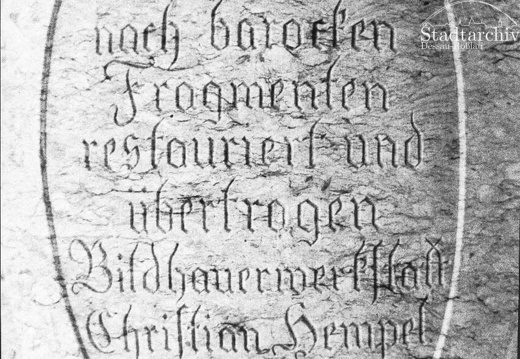 Stadtarchiv
Dessau-Roßlau
nach barocken
Fragmenten
restauriert und
übertragen
Bildhauerwerkstatt
Christian Hempel